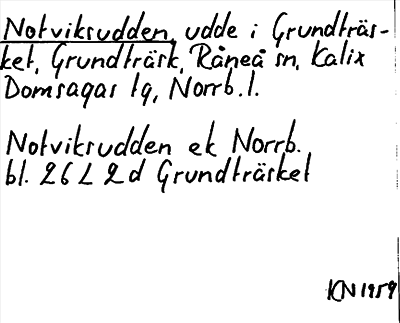 Notviksudden, udde i Grundträs-
ket, Grundträsk, Råneå sn, Kalix
Domsagas tg, Norrb. l.
Notviksudden ek Norrb.
bl. 26 L 2 d Grundträsket
KN 1959